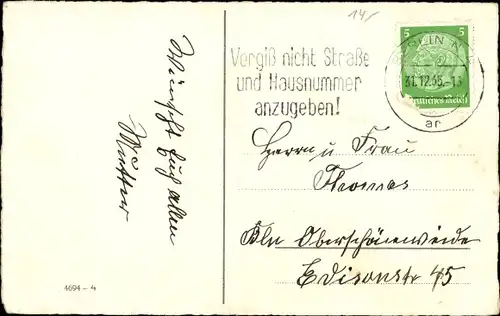 14,-
Wünscht Euch allen
Mutter
4694 - 4
Vergiß nicht Straße
und Hausnummer
anzugeben!
BERLIN N
31.12.35.-13
ar
5 5
Deutsches Reich
Herrn u Frau
Thomas
Bln Oberschöneweide
Edisonstr 45